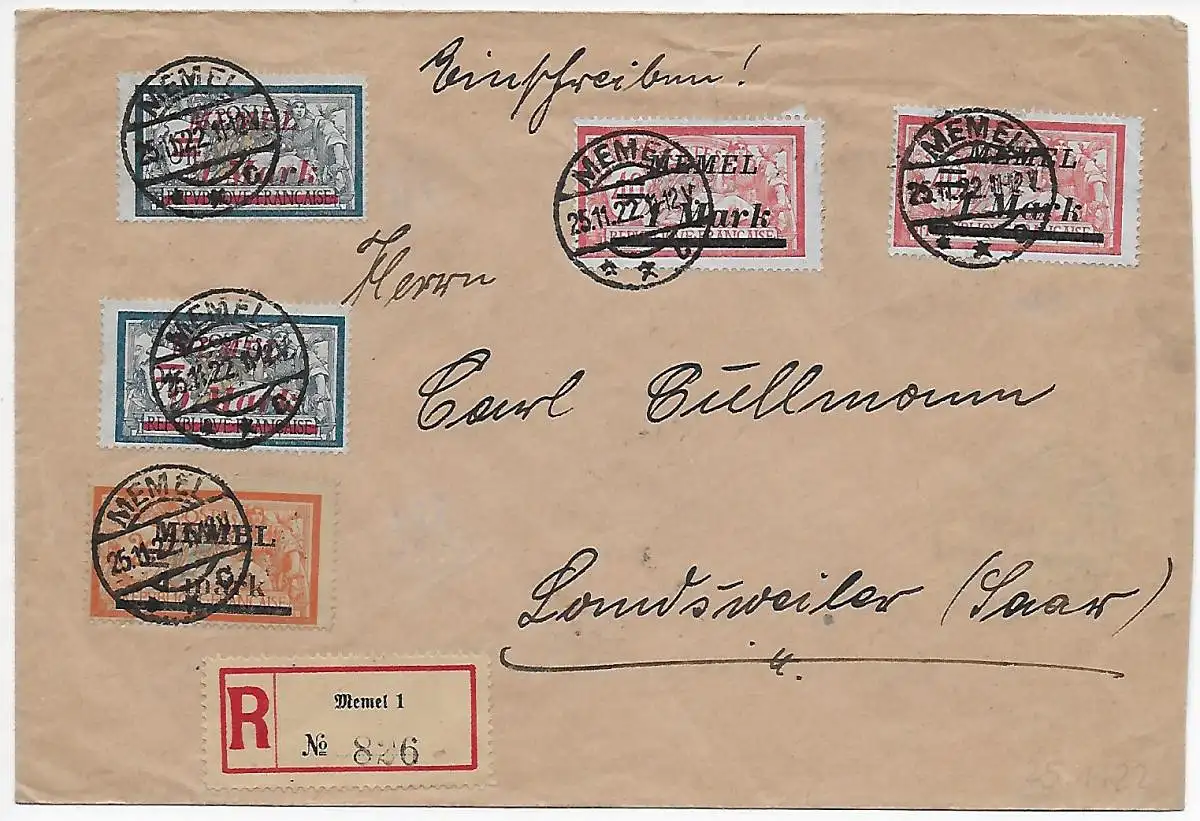 Einschreiben!
MEMEL
POSTES
MEMEL
Mark
REPVBLIQVE FRANÇAISE
MEMEL
25.11.22.11-12V
c
40
MEMEL
1 Mark
REPVBLIQVE FRANÇAISE
MEMEL
25.11.22.11-12V
c
40
MEMEL
1 Mark
REPVBLIQVE FRANÇAISE
Herrn
MEMEL
25.11.22
POSTES
Mark
REPVBLIQVE FRANÇAISE
Carl Cullmann
MEMEL
25.11.22
c
MEMEL
mark
FRANÇAISE
Landsweiler (Saar)
R
Memel 1
№ 826